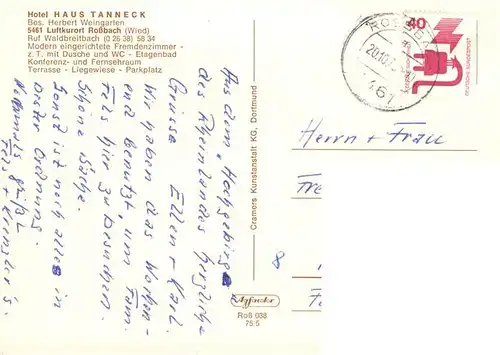 Hotel HAUS TANNECK
Bes. Herbert Weingarten
5461 Luftkurort Roßbach (Wied)
Ruf Waldbreitbach (0 26 38) 58 34
Modern eingerichtete Fremdenzimmer -
z. T. mit Dusche und WC - Etagenbad
Konferenz- und Fernsehraum
Terrasse - Liegewiese - Parkplatz
Aus dem „Hochgebirge"
des Rheinlandes herzliche
Grüsse Ellen + Karl.
Wir haben das Wochen-
end benutzt, um Fam.
Fels hier zu besuchen.
Schöne Bäche.
Sonst ist noch alles in
bester Ordnung.
Nochmals grüßt
Fels +
Cramers Kunstanstalt KG, Dortmund
Roß 038
75/5
8
40
DEUTSCHE BUNDESPOST
461
Herrn + Frau
Fre